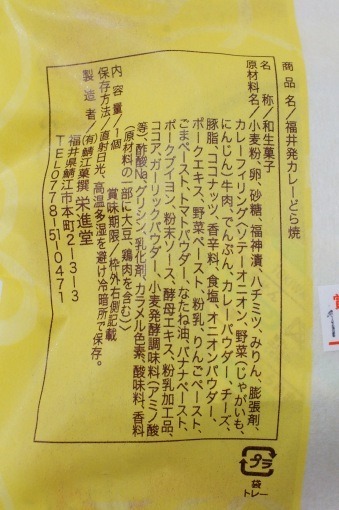 商品名/福井発カレーどら焼
名称/和生菓子
原材料名/小麦粉、卵、砂糖、福神漬、ハチミツ、みりん、膨張剤、
カレーフィリング(ソテーオニオン、野菜(じゃがいも、
にんじん)牛肉、でんぷん、カレーパウダー、チーズ、
豚脂、ココナッツ、香辛料、食塩、オニオンパウダー、
ポークエキス、野菜ペースト、粉乳、りんごペースト、
ごまペースト、トマトパウダー、なたね油、バナナペースト、
ポークブイヨン、粉末ソース、酵母エキス、粉乳加工品、
ココア、ガーリックパウダー、小麦発酵調味料(アミノ酸
等)、酢酸Na、グリシン、乳化剤、カラメル色素、酸味料、香料
(原材料の一部に大豆、鶏肉を含む))
内容量/1個 賞味期限/枠外右側記載
保存方法/直射日光、高温多湿を避け冷暗所で保存。
製造者/(有)鯖江菓撰 栄進堂
福井県鯖江市本町2-3-3
TEL0778-51-0471
プラ
袋
トレー